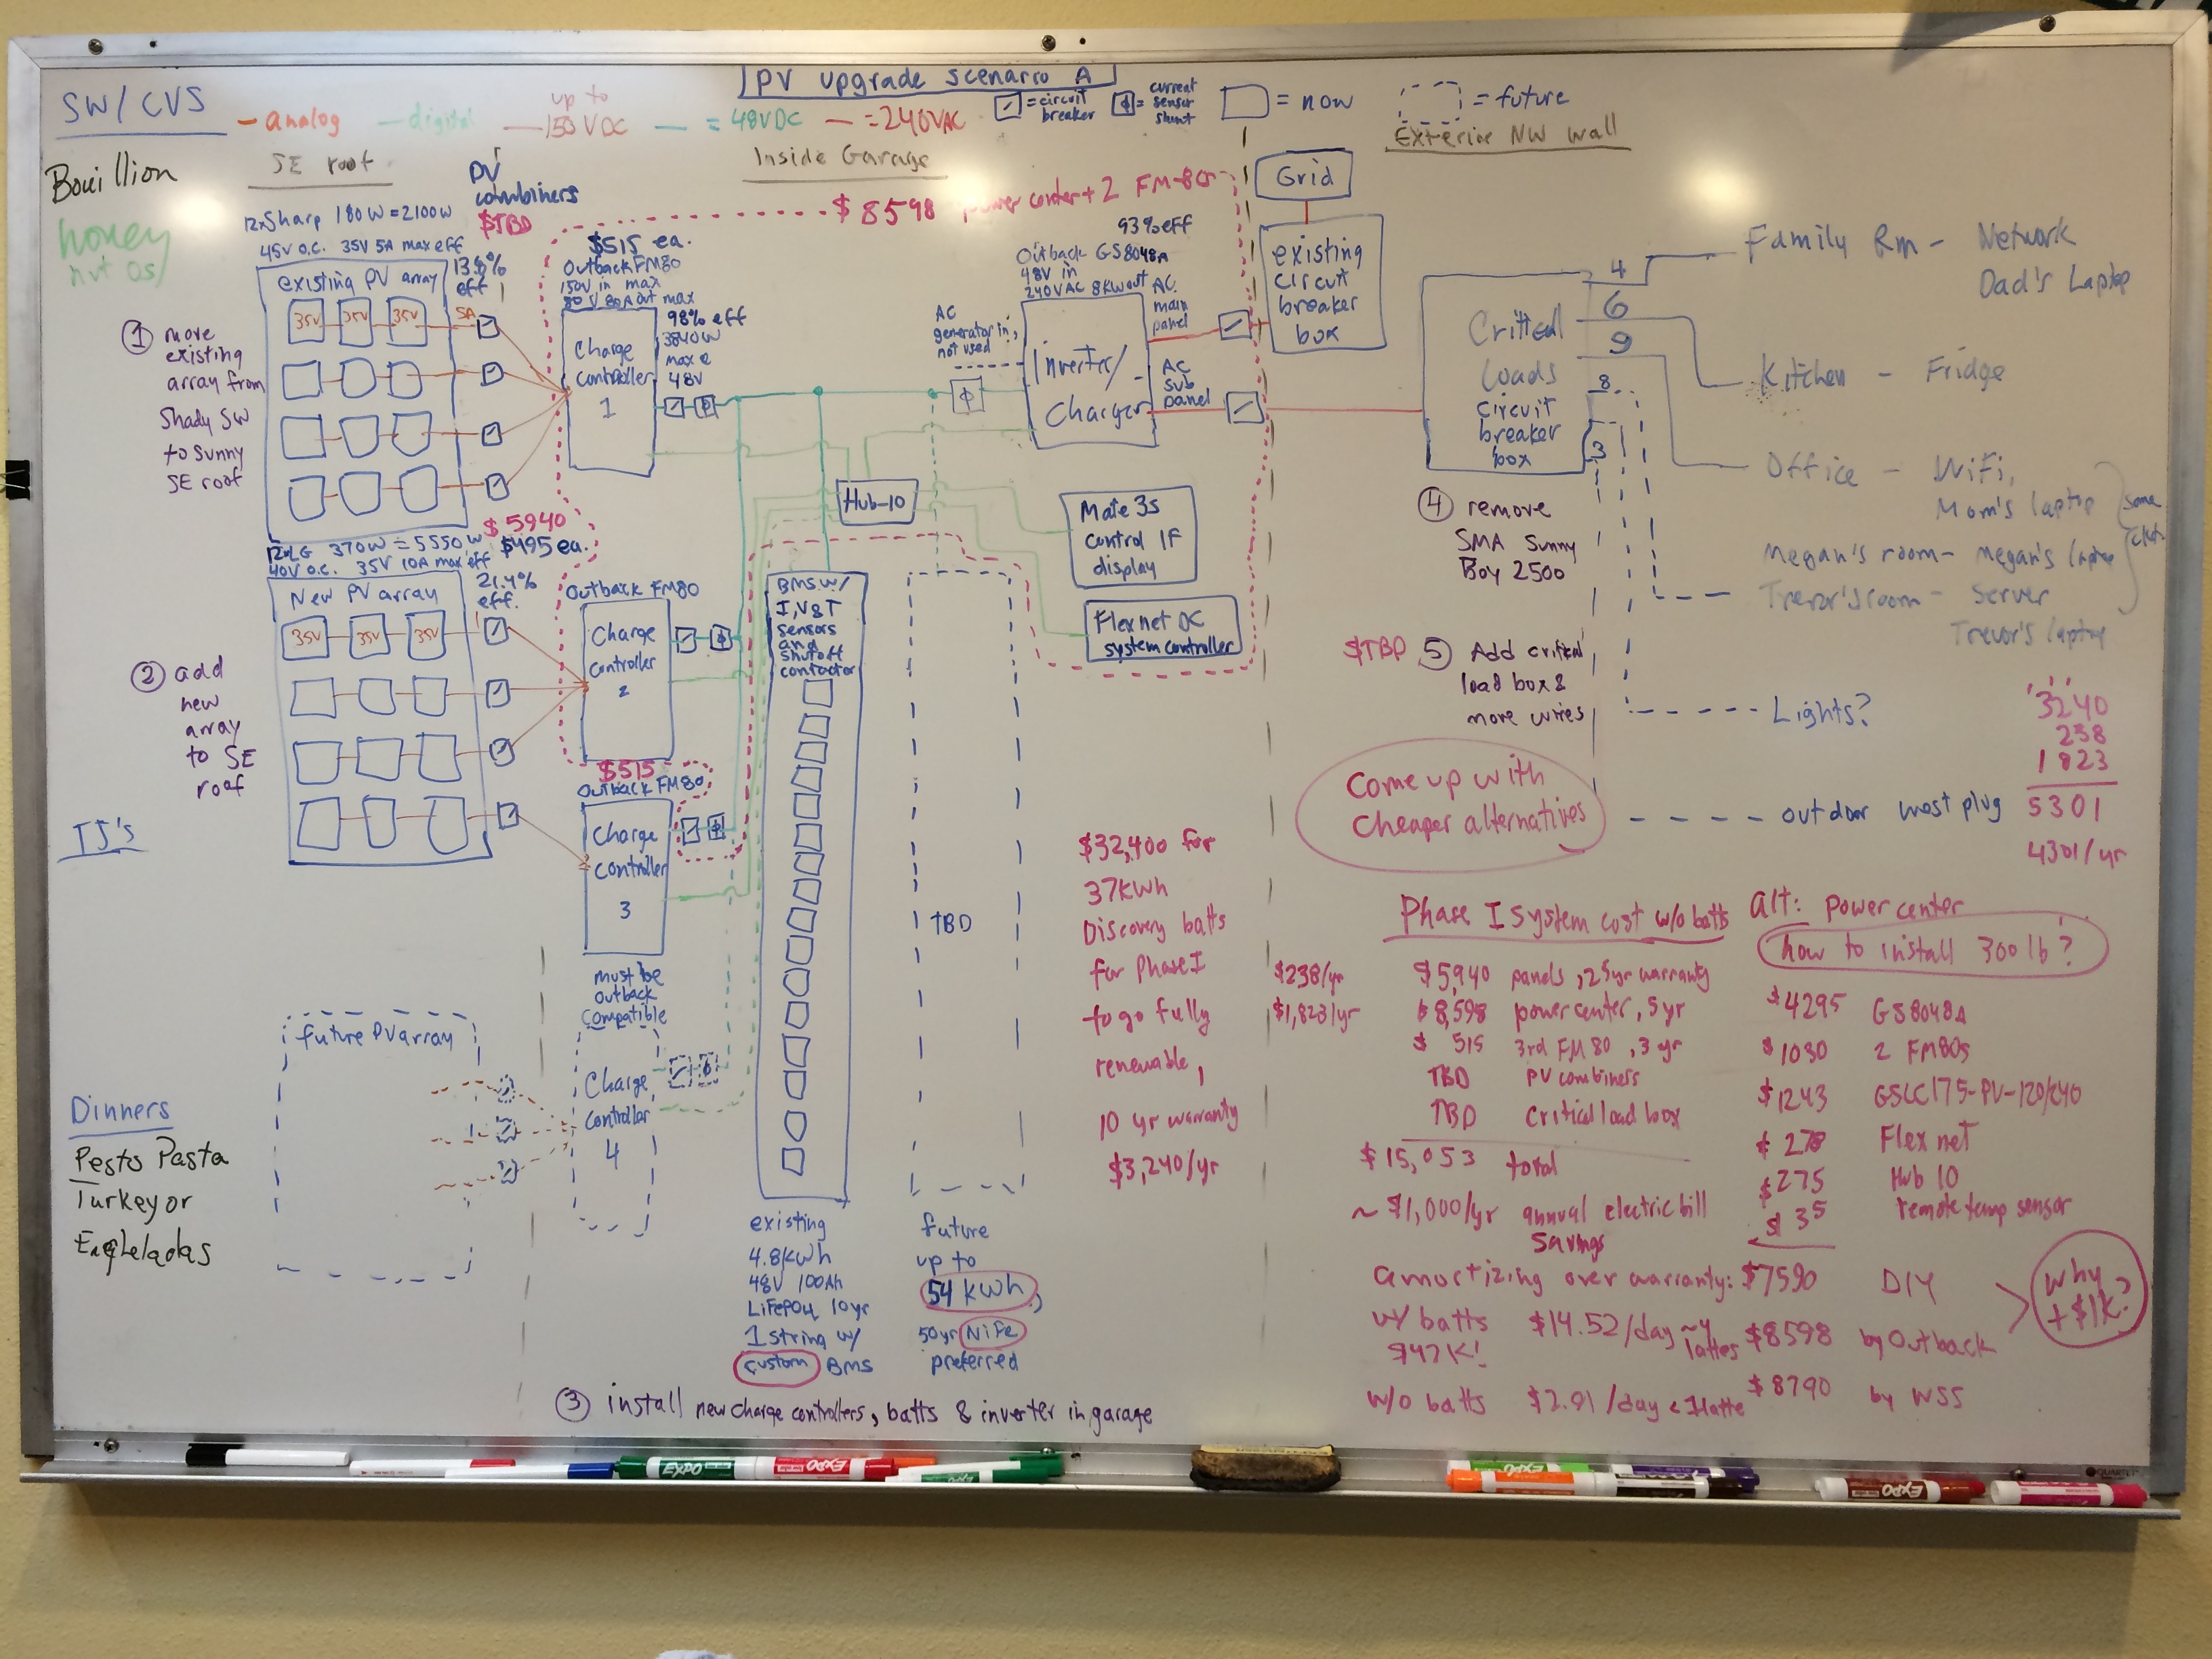 PV upgrade scenario A
SW/CVS
- analog
- digital
- up to 150 VDC
- = 48VDC
- = 240VAC
= circuit breaker
= current sensor shunt
= now
= future
Bouillion
honey
nut Os
SE roof
PV
combiners
$TBD
Inside Garage
Exterior NW wall
12xSharp 180W = 2100W
45V o.c. 35V 5A max eff
existing PV array
35V 35V 35V
5A
① move
existing
array from
Shady SW
to sunny
SE roof
$5940
$495 ea.
12xLG 370W = 5550W
40V o.c. 35V 10A max eff
21.4%
eff.
New PV array
35V 35V 35V
② add
new
array
to SE
roof
TJ's
Dinners
Pesto Pasta
Turkey or
future PV array
$8598 power center + 2 FM-80s
$515 ea.
Outback FM80
150V in max
80V 80A out max
98% eff
3840W
max @
48V
Charge
controller
1
Outback FM80
Charge
controller
2
$515
Outback FM80
Charge
controller
3
must be
outback
compatible
Charge
controller
4
AC
generator in,
not used
93% eff
Outback GS8048A
48V in
240VAC 8KW out
Inverter/
charger
AC
main
panel
AC
sub
panel
Hub-10
Mate 3s
control IF
display
Flexnet DC
system controller
BMS w/
I, V & T
sensors
and
shutoff
contactor
TBD
existing
4.8kWh
48V 100Ah
LiFePO4 10yr
1 string w/
custom BMS
future
up to
54 kWh,
50yr NiFe
preferred
③ install new charge controllers, batts & inverter in garage
$32,400 for
37kWh
Discovery batts
for Phase I
to go fully
renewable,
10 yr warranty
$3,240/yr
Grid
existing
circuit
breaker
box
Critical
loads
circuit
breaker
box
4
6
9
8
3
Family Rm - Network
Dad's Laptop
Kitchen - Fridge
Office - WiFi,
Mom's laptop
Megan's room - Megan's laptop
Trevor's room - Server
Trevor's laptop
same
Lights?
outdoor west plug
④ remove
SMA Sunny
Boy 2500
$TBD ⑤ Add critical
load box &
more wires
Come up with
cheaper alternatives
3240
238
1823
5301
4301/yr
Phase I system cost w/o batts
$238/yr $5,940 panels, 25yr warranty
$1,823/yr $8,598 power center, 5 yr
$ 515 3rd FM 80, 3 yr
TBD PV combiners
TBD Critical load box
$15,053 total
~ $1,000/yr annual electric bill
savings
amortizing over warranty:
w/ batts $14.52/day ~4 lattes
$47K!
w/o batts $2.91/day < 1 latte
alt: power center
how to install 300 lb?
$4295 GS8048A
$1030 2 FM80s
$1243 GSLC175-PV-120/240
$ 278 Flex net
$275 Hub 10
$ 35 remote temp sensor
$7590 DIY
$8598 by Outback
$8790 by WSS
why
+ $1k?
EXPO
EXPO
EXPO
EXPO
QUARTET